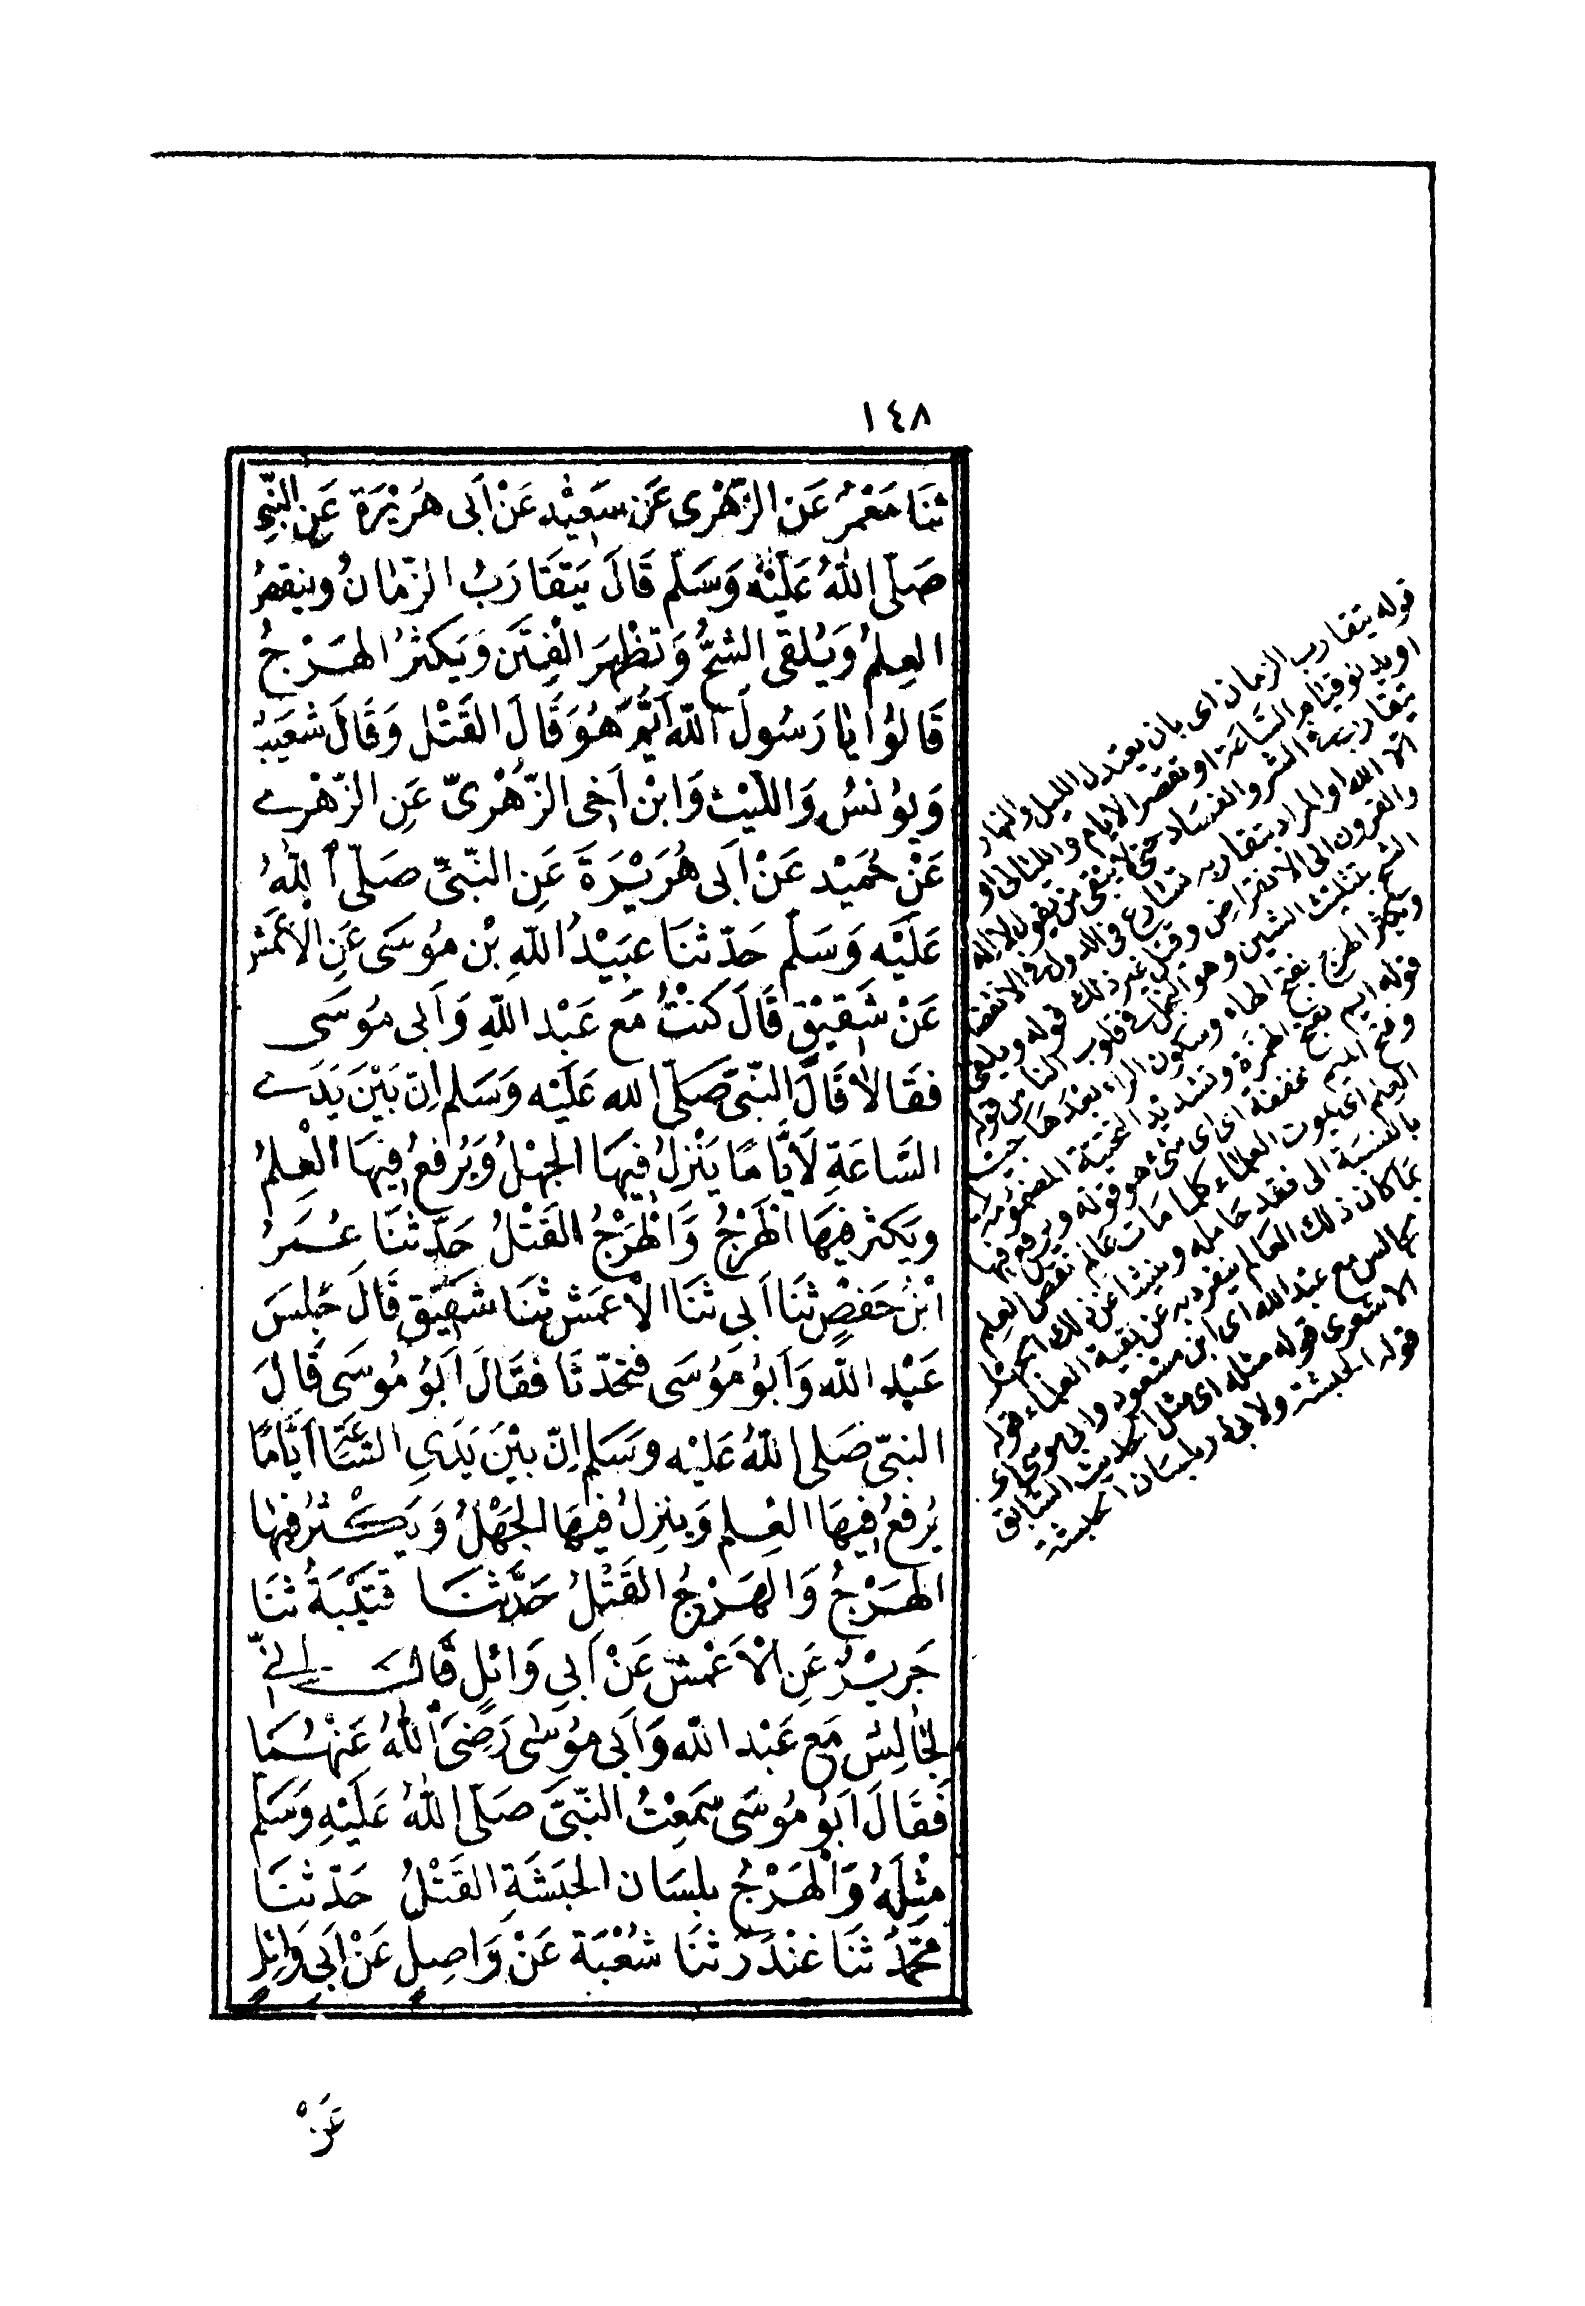 ١٤٨
ثَنَا مَعْمَرُ عَنِ الزُّهْرِى عَنْ سَعِيْدٍ عَنْ اَبى هُرَيْرَةَ عَنِ النَّبِىِّ
صَلّى اللهُ عَلَيْهِ وَسَلّم قَالَ يَتَقَارَبُ الزّمَانُ وينقصُ
العِلمُ وَيُلقى الشحُّ وَتظْهرَ الْفِتَن وَيَكثرُ الهَرْجُ
قَالوُا يَا رَسُولَ اللّه اَيُّم هُوَ قَالَ القَتْل وَقَالَ شعَيبُ
وَيوُنسُ وَاللّيث وَابْن اَخِى الزّهْرىّ عَنِ الزّهْرى
عَنْ حُمَيْد عَنْ اَبى هُرَيْرَةَ عَنِ النّبىّ صَلّى اللهُ
عَلَيْه وَسَلّم حَدّثنَا عبَيْدُ اللهِ بْن موُسَى عَنِ الْاَعْمَش
عَنْ شَقِيْقٍ قَالَ كنتُ مَع عَبْد اللهِ وَاَبى موُسَى
فقَالاَ قَالَ النّبىّ صَلّى الله عَلَيْه وَسَلم اِنّ بَيْنَ يَدَى
السَّاعَةِ لَاَيَّامًا يَنْزلُ فِيهَا الجهْلُ وَيُرفعُ فِيهَا الْعِلمُ
ويَكثر فيهَا الهَرْجُ وَالهَرْجُ القَتْلُ حَدّثنَا عُمَرُ
ابْنُ حَفصٍ ثنَا اَبى ثنَا الْاعْمَش ثنَا شَقيق قَالَ جَلسَ
عَبْد اللّه وَاَبوُ موُسَى فتحَدّثا فقَالَ اَبوُ موُسَى قَالَ
النبىّ صَلى اللهُ عَليْه وسَلم اِنّ بيْنَ يَدَىِ السَّاعَةِ اَيَّامًا
يُرفعُ فِيهَا العِلم وَينزِلُ فيهَا الجَهْلُ وَيَكْثُرُ فيهَا
الهَرْجُ وَالهَرْجُ القَتْلُ حَدَّثنَا قتَيْبَةُ ثنَا
جَرِيْرٌ عَنِ الْاَعْمَش عَنْ اَبى وَائلٍ قَالَ اِنّى
لجَالِسٌ مَع عَبْد اللّه وَاَبى موُسٰى رَضِىَ اللهُ عَنْهُمَا
فَقَالَ اَبوُ موُسَى سَمِعْتُ النّبىَّ صَلّى اللهُ عَلَيْهِ وَسَلّمَ
مِثْلَهُ وَالْهَرْجُ بلسَان الحبَشَةِ القَتْلُ حَدّثنَا
محَمَّدُ ثنَا غنْدَرٌ ثنَا شُعْبَة عَنْ وَاصِلٍ عَنْ اَبى وَائِلٍ
عَنْ
قوله يتقارب الزمان اى بان يعتدل الليل والنهار
او يدنو قيام السّاعة او تقصر الايام والليالى او
يتقارب فى الشر والفسَاد حتى لا يبقى من يقول لا اله
الا الله او المراد بتقاربه تسَارع الدول فى الانقضا
والقرون الى الانقراض وقيل غير ذلك قوله ويلقى
الشح بتثليث الشين وهو البخل فى قلوب الناس قوله
ويكثر الهرج بفتح الهاء وسكون الراء بعدها جيم
قوله ايم بفتح الهمزة وتشديد التحتية المضمومة
وفتح الميم مخففة اى اى شئ هو قوله ويرفع فيها
العلم اى بموت العلماء كلما مات عالم نقص العلم
بالنسبة الى فقد حامله وينشا عن ذلك الجهل
بما كان ذلك العالم ينفرد به عن بقية العلماء قوله
جالس مع عبد الله اى ابن مسعود وابى موسى اى
الاشعرى قوله مثله اى مثل الحديث السّابق
قوله الحبشة ولابى ذر بلسَان الحبشة